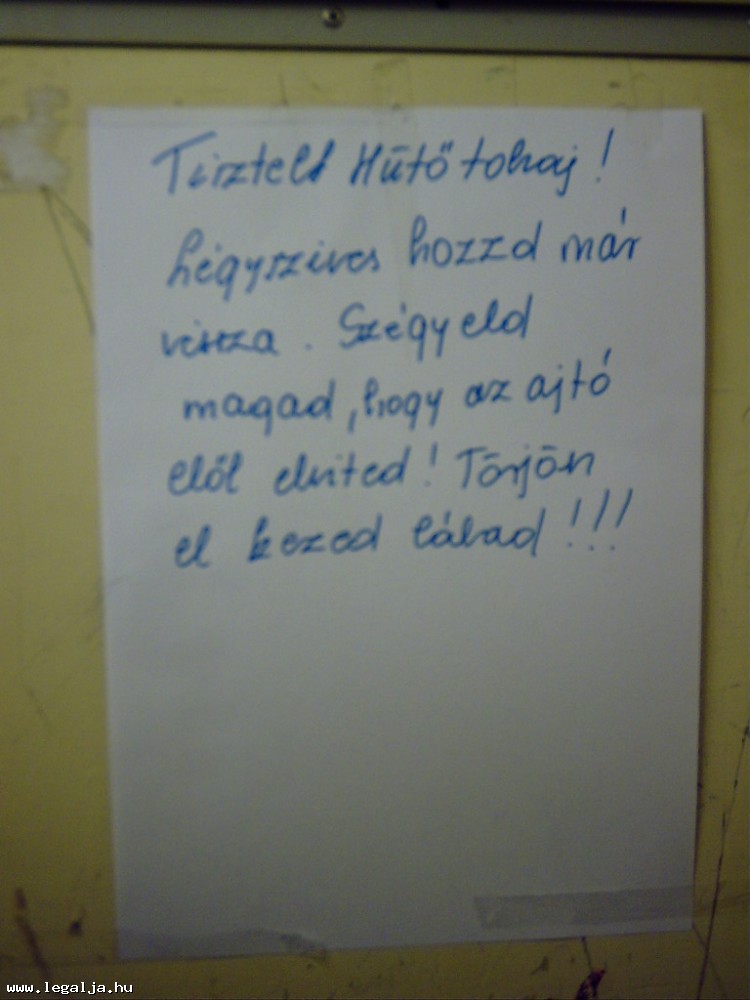 Tisztelt Hűtő tolvaj!
Légyszives hozzd már
vissza. Szégyeld
magad, hogy az ajtó
elől elvited! Törjön
el kezed lábad!!!
www.legalja.hu